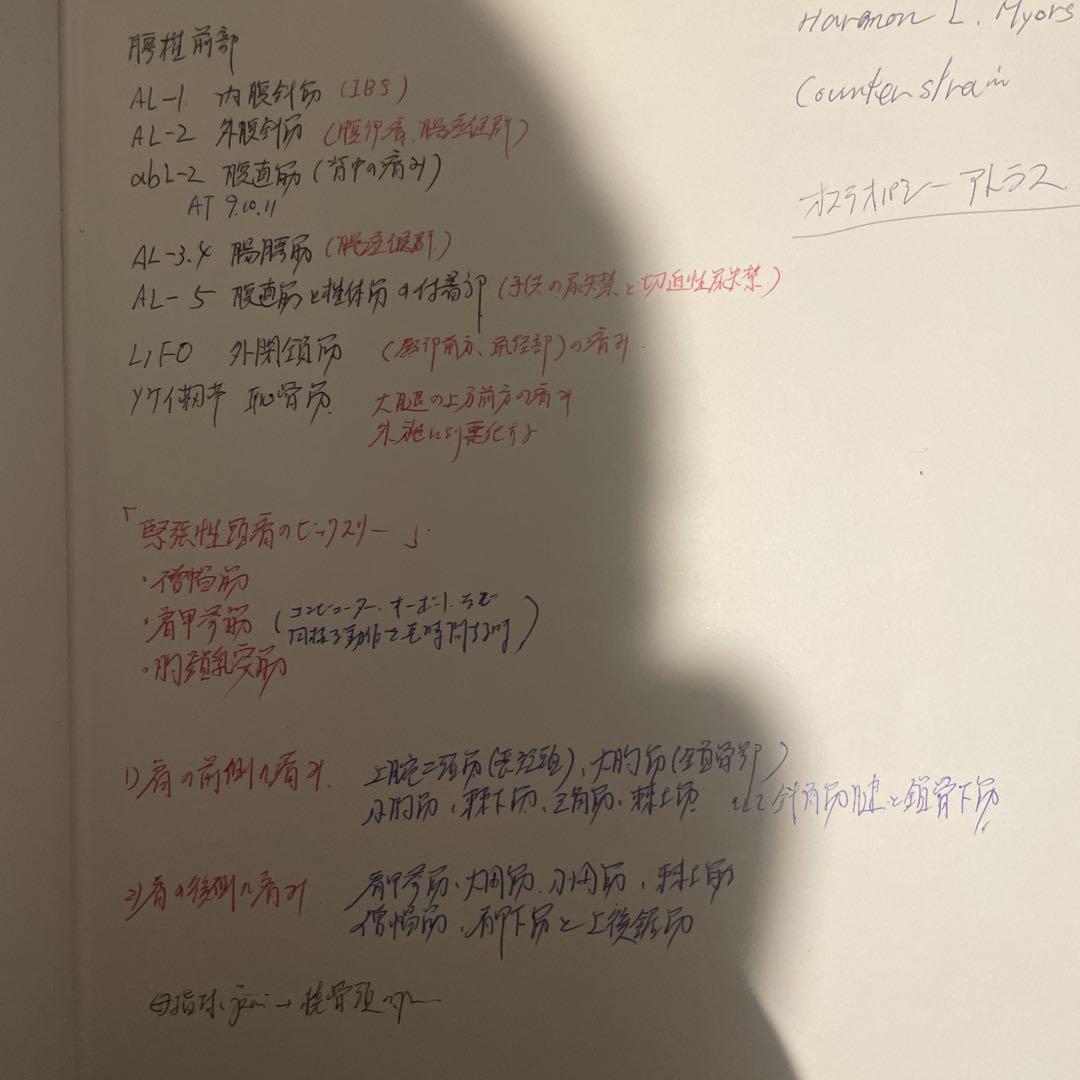 腰椎前部
AL-1. 内腹斜筋 (IBS)
AL-2 外腹斜筋 (腹部痛、腸症候群)
abL-2 腹直筋 (背中の痛み)
AT 9.10.11
AL-3.4 腸腰筋 (腸症候群)
AL-5 腹直筋と椎体筋の付着部 (子供の尿失禁と切迫性尿失禁)
LIFO 外閉鎖筋 (殿部前方、鼠径部)の痛み
ソケイ靭帯 恥骨筋 大腿の上方前方の痛み
外転により悪化する
「緊張性頭痛のビックスリー」
・僧帽筋
・肩甲挙筋 (コンピューター、
同様な動作を長時間する時)
・胸鎖乳突筋
1) 肩の前側の痛み 上腕二頭筋(長短頭)、大胸筋(鎖骨部)
小胸筋、棘下筋、三角筋、棘上筋 そして斜角筋腱と鎖骨下筋
2) 肩の後側の痛み 肩甲挙筋、大円筋、小円筋、棘上筋
僧帽筋、肩甲下筋と上後鋸筋
母指球 → 橈骨頭
Harmon L. Myors
Counterstrain
オステオパシーアトラス